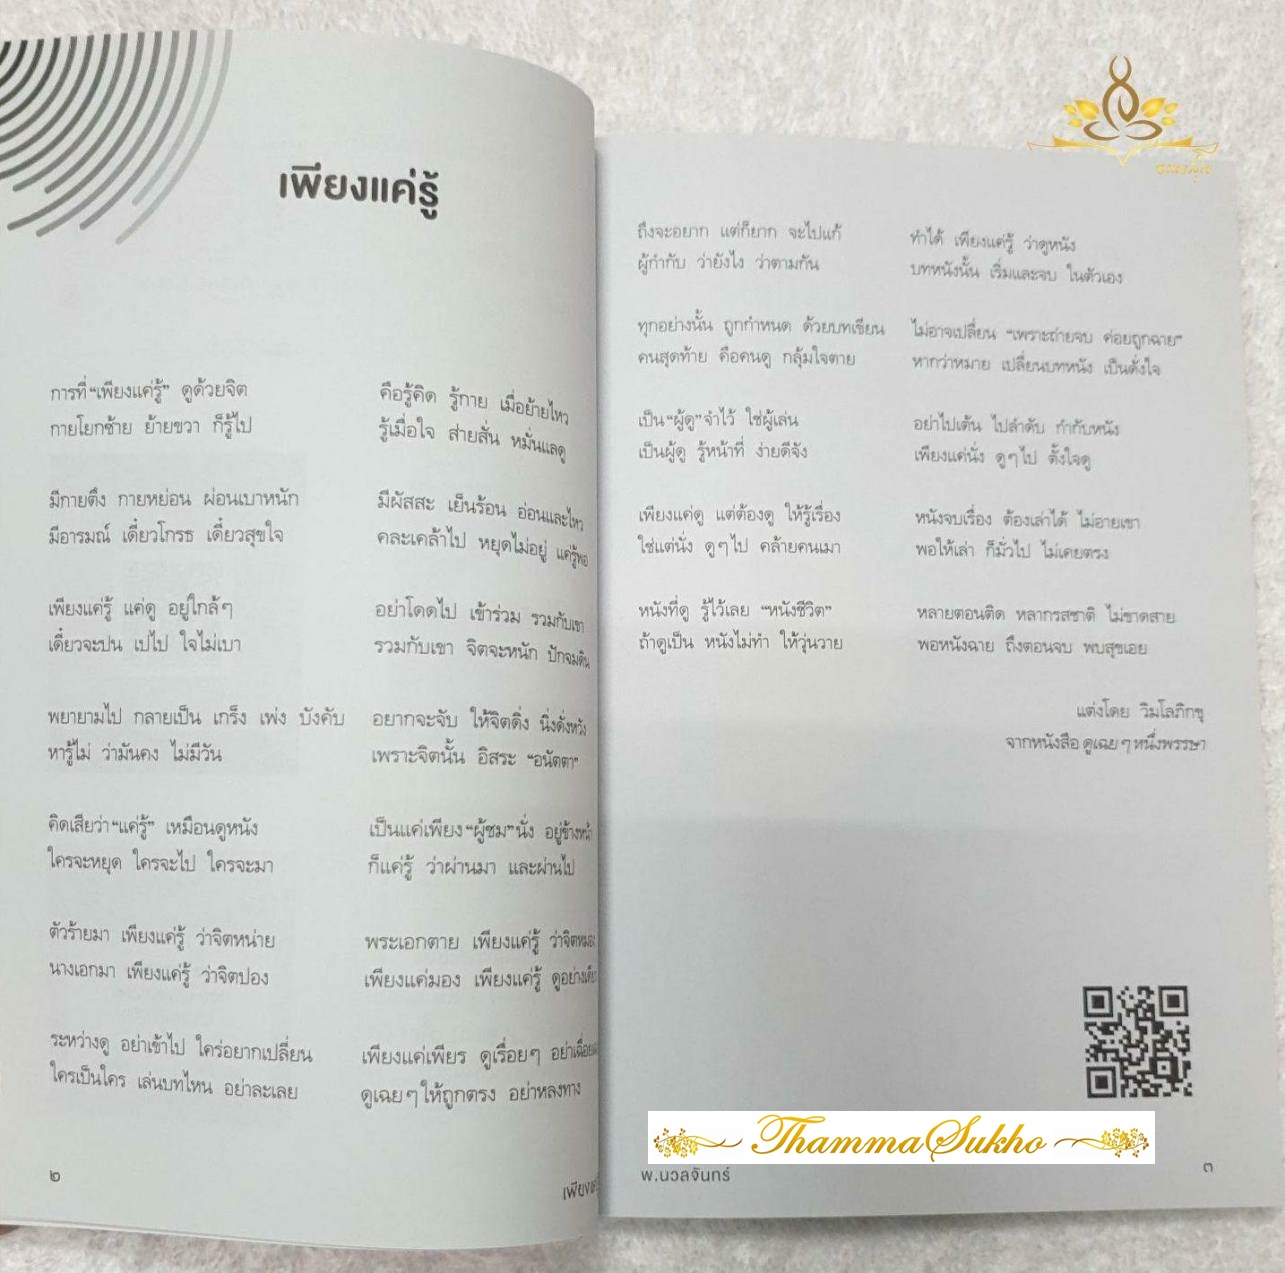 เพียงแค่รู้
การที่“เพียงแค่รู้” ดูด้วยจิต คือรู้คิด รู้กาย เมื่อย้ายไหว
กายโยกซ้าย ย้ายขวา ก็รู้ไป รู้เมื่อใจ ส่ายสั่น หมั่นแลดู
มีกายตึง กายหย่อน ผ่อนเบาหนัก มีผัสสะ เย็นร้อน อ่อนและไหว
มีอารมณ์ เดี๋ยวโกรธ เดี๋ยวสุขใจ คละเคล้าไป หยุดไม่อยู่ แค่รู้พอ
เพียงแค่รู้ แค่ดู อยู่ใกล้ๆ อย่าโดดไป เข้าร่วม รวมกับเขา
เดี๋ยวจะปน เปไป ใจไม่เบา รวมกับเขา จิตจะหนัก ปักจมดิน
พยายามไป กลายเป็น เกร็ง เพ่ง บังคับ อยากจะจับ ให้จิตดิ่ง นิ่งดั่งหวัง
หารู้ไม่ ว่ามันคง ไม่มีวัน เพราะจิตนั้น อิสระ “อนัตตา”
คิดเสียว่า“แค่รู้” เหมือนดูหนัง เป็นแค่เพียง“ผู้ชม”นั่ง อยู่ข้างหน้า
ใครจะหยุด ใครจะไป ใครจะมา ก็แค่รู้ ว่าผ่านมา และผ่านไป
ตัวร้ายมา เพียงแค่รู้ ว่าจิตหน่าย พระเอกตาย เพียงแค่รู้ ว่าจิตหมอง
นางเอกมา เพียงแค่รู้ ว่าจิตปอง เพียงแค่มอง เพียงแค่รู้ ดูอย่างเดียว
ระหว่างดู อย่าเข้าไป ใคร่อยากเปลี่ยน เพียงแค่เพียร ดูเรื่อยๆ
ใครเป็นใคร เล่นบทไหน อย่าละเลย ดูเฉยๆให้ถูกตรง อย่าหลงทาง
๒
ถึงจะอยาก แต่ก็ยาก จะไปแก้ ทำได้ เพียงแค่รู้ ว่าดูหนัง
ผู้กำกับ ว่ายังไง ว่าตามกัน บทหนังนั้น เริ่มและจบ ในตัวเอง
ทุกอย่างนั้น ถูกกำหนด ด้วยบทเขียน ไม่อาจเปลี่ยน “เพราะถ่ายจบ ค่อยถูกฉาย”
คนสุดท้าย คือคนดู กลุ้มใจตาย หากว่าหมาย เปลี่ยนบทหนัง เป็นดั่งใจ
เป็น“ผู้ดู”จำไว้ ใช่ผู้เล่น อย่าไปเต้น ไปลำดับ กำกับหนัง
เป็นผู้ดู รู้หน้าที่ ง่ายดีจัง เพียงแค่นั่ง ดูๆไป ตั้งใจดู
เพียงแค่ดู แต่ต้องดู ให้รู้เรื่อง หนังจบเรื่อง ต้องเล่าได้ ไม่อายเขา
ใช่แต่นั่ง ดูๆไป คล้ายคนเมา พอให้เล่า ก็มั่วไป ไม่เคยตรง
หนังที่ดู รู้ไว้เลย “หนังชีวิต” หลายตอนติด หลากรสชาติ ไม่ขาดสาย
ถ้าดูเป็น หนังไม่ทำ ให้วุ่นวาย พอหนังฉาย ถึงตอนจบ พบสุขเอย
แต่งโดย วิมโลภิกขุ
จากหนังสือ ดูเฉยๆหนึ่งพรรษา
ThammaSukho
พ.นวลจันทร์
๓